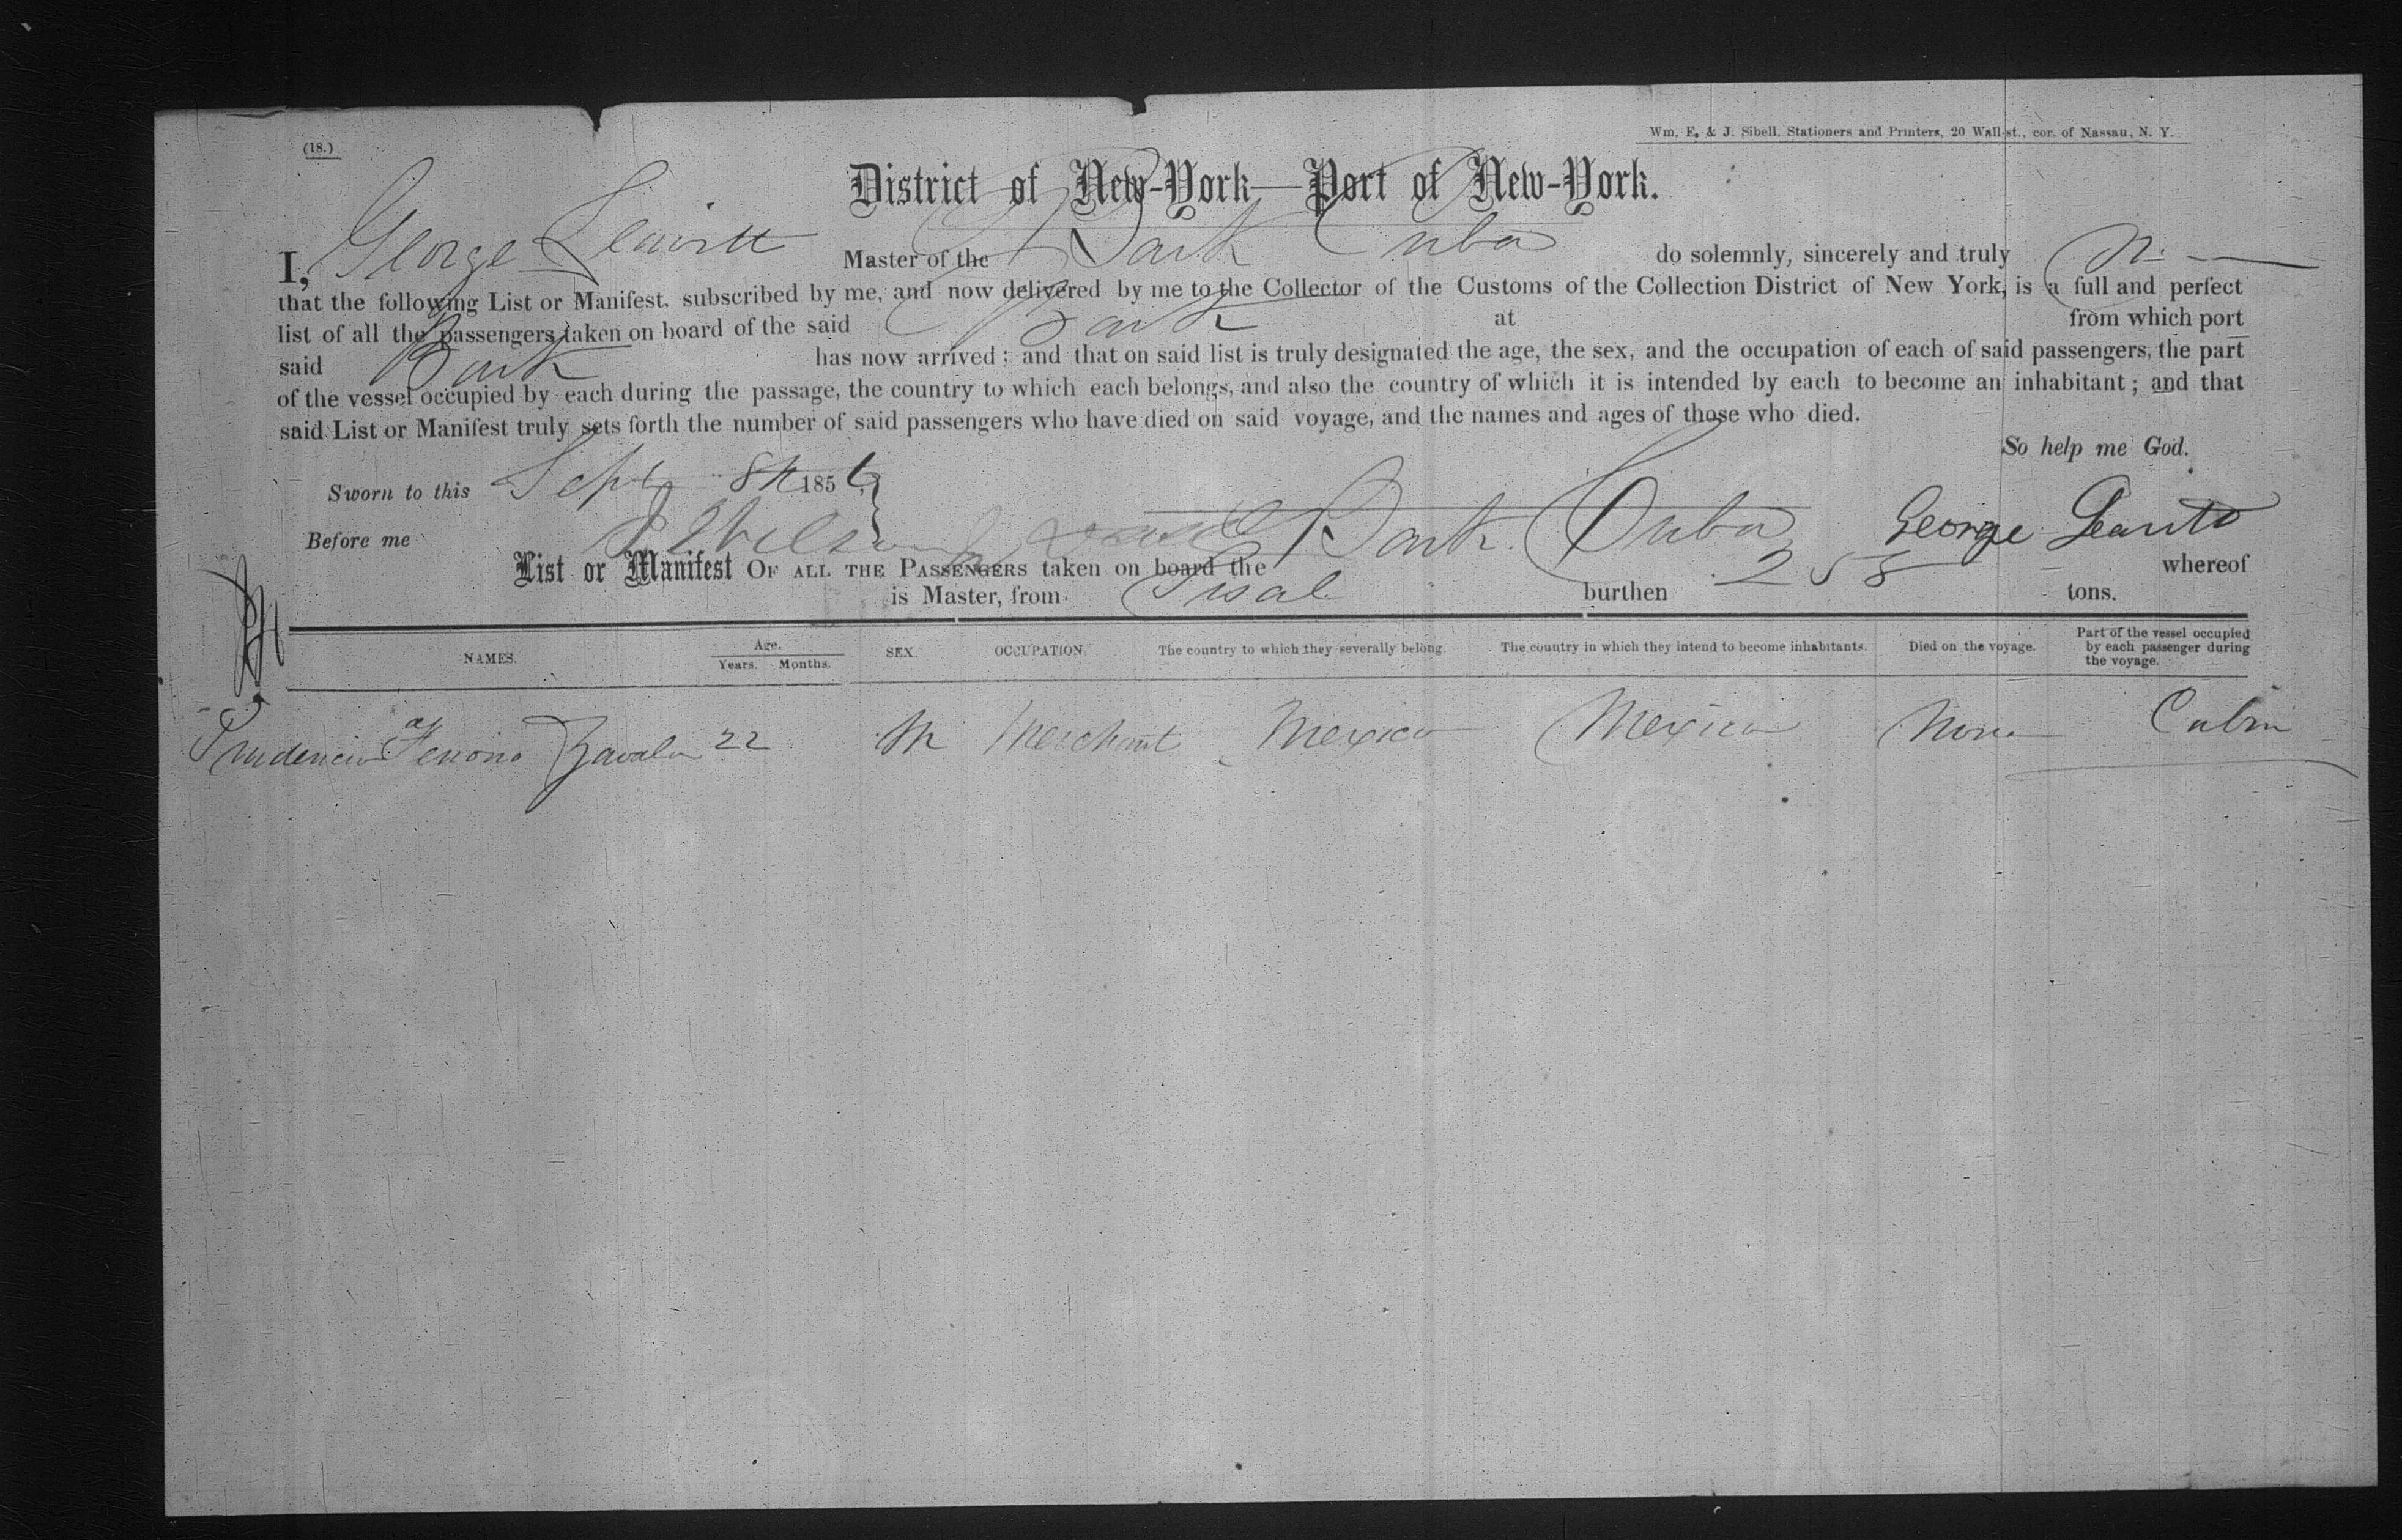 (18.)
Wm. E. & J. Sibell, Stationers and Printers, 20 Wall-st., cor. of Nassau, N. Y.
District of New-York—Port of New-York.
I, George Leavitt Master of the Bark Cuba do solemnly, sincerely and truly
that the following List or Manifest, subscribed by me, and now delivered by me to the Collector of the Customs of the Collection District of New York, is a full and perfect
list of all the passengers taken on board of the said Bark at from which port
said Bark has now arrived; and that on said list is truly designated the age, the sex, and the occupation of each of said passengers, the part
of the vessel occupied by each during the passage, the country to which each belongs, and also the country of which it is intended by each to become an inhabitant; and that
said List or Manifest truly sets forth the number of said passengers who have died on said voyage, and the names and ages of those who died.
So help me God.
Sworn to this Sept 8th 1856
Before me George Leavitt
List or Manifest OF ALL THE PASSENGERS taken on board the Bark Cuba whereof
is Master, from Sisal burthen 258 tons.
NAMES. Age. Years. Months. SEX. OCCUPATION. The country to which they severally belong. The country in which they intend to become inhabitants. Died on the voyage. Part of the vessel occupied by each passenger during the voyage.
Prudencio Zavala 22 M Merchant Mexico Mexico None Cabin